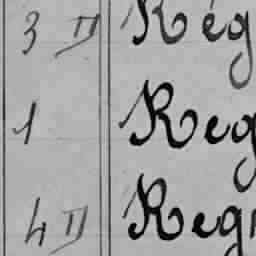 3 II Rég
1 Reg
4 II Regi